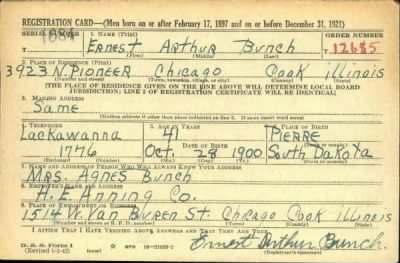 REGISTRATION CARD—(Men born on or after February 17, 1897 and on or before December 31, 1921)
SERIAL NUMBER 1. NAME (Print) ORDER NUMBER
Ernest Arthur Bunch 12685
(First) (Middle) (Last)
2. PLACE OF RESIDENCE (Print)
3923 N. Pioneer Chicago Cook Illinois
(Number and street) (Town, township, village, or city) (County) (State)
[THE PLACE OF RESIDENCE GIVEN ON THE LINE ABOVE WILL DETERMINE LOCAL BOARD
JURISDICTION; LINE 2 OF REGISTRATION CERTIFICATE WILL BE IDENTICAL]
3. MAILING ADDRESS
Same
[Mailing address if other than place indicated on line 2. If same insert word same]
4. TELEPHONE 5. AGE IN YEARS 6. PLACE OF BIRTH
Lackawanna 41 Pierre
DATE OF BIRTH
1776 Oct. 28 1900 South Dakota
(Exchange) (Number) (Mo.) (Day) (Yr.) (State or country)
7. NAME AND ADDRESS OF PERSON WHO WILL ALWAYS KNOW YOUR ADDRESS
Mrs. Agnes Bunch
8. EMPLOYER'S NAME AND ADDRESS
A. E. Anning Co.
9. PLACE OF EMPLOYMENT OR BUSINESS
1514 W. Van Buren St. Chicago Cook Illinois
(Number and street or R. F. D. number) (Town) (County) (State)
I AFFIRM THAT I HAVE VERIFIED ABOVE ANSWERS AND THAT THEY ARE TRUE.
D. S. S. Form 1
(Revised 1-1-42) GPO 16—21630-2 Ernest Arthur Bunch.